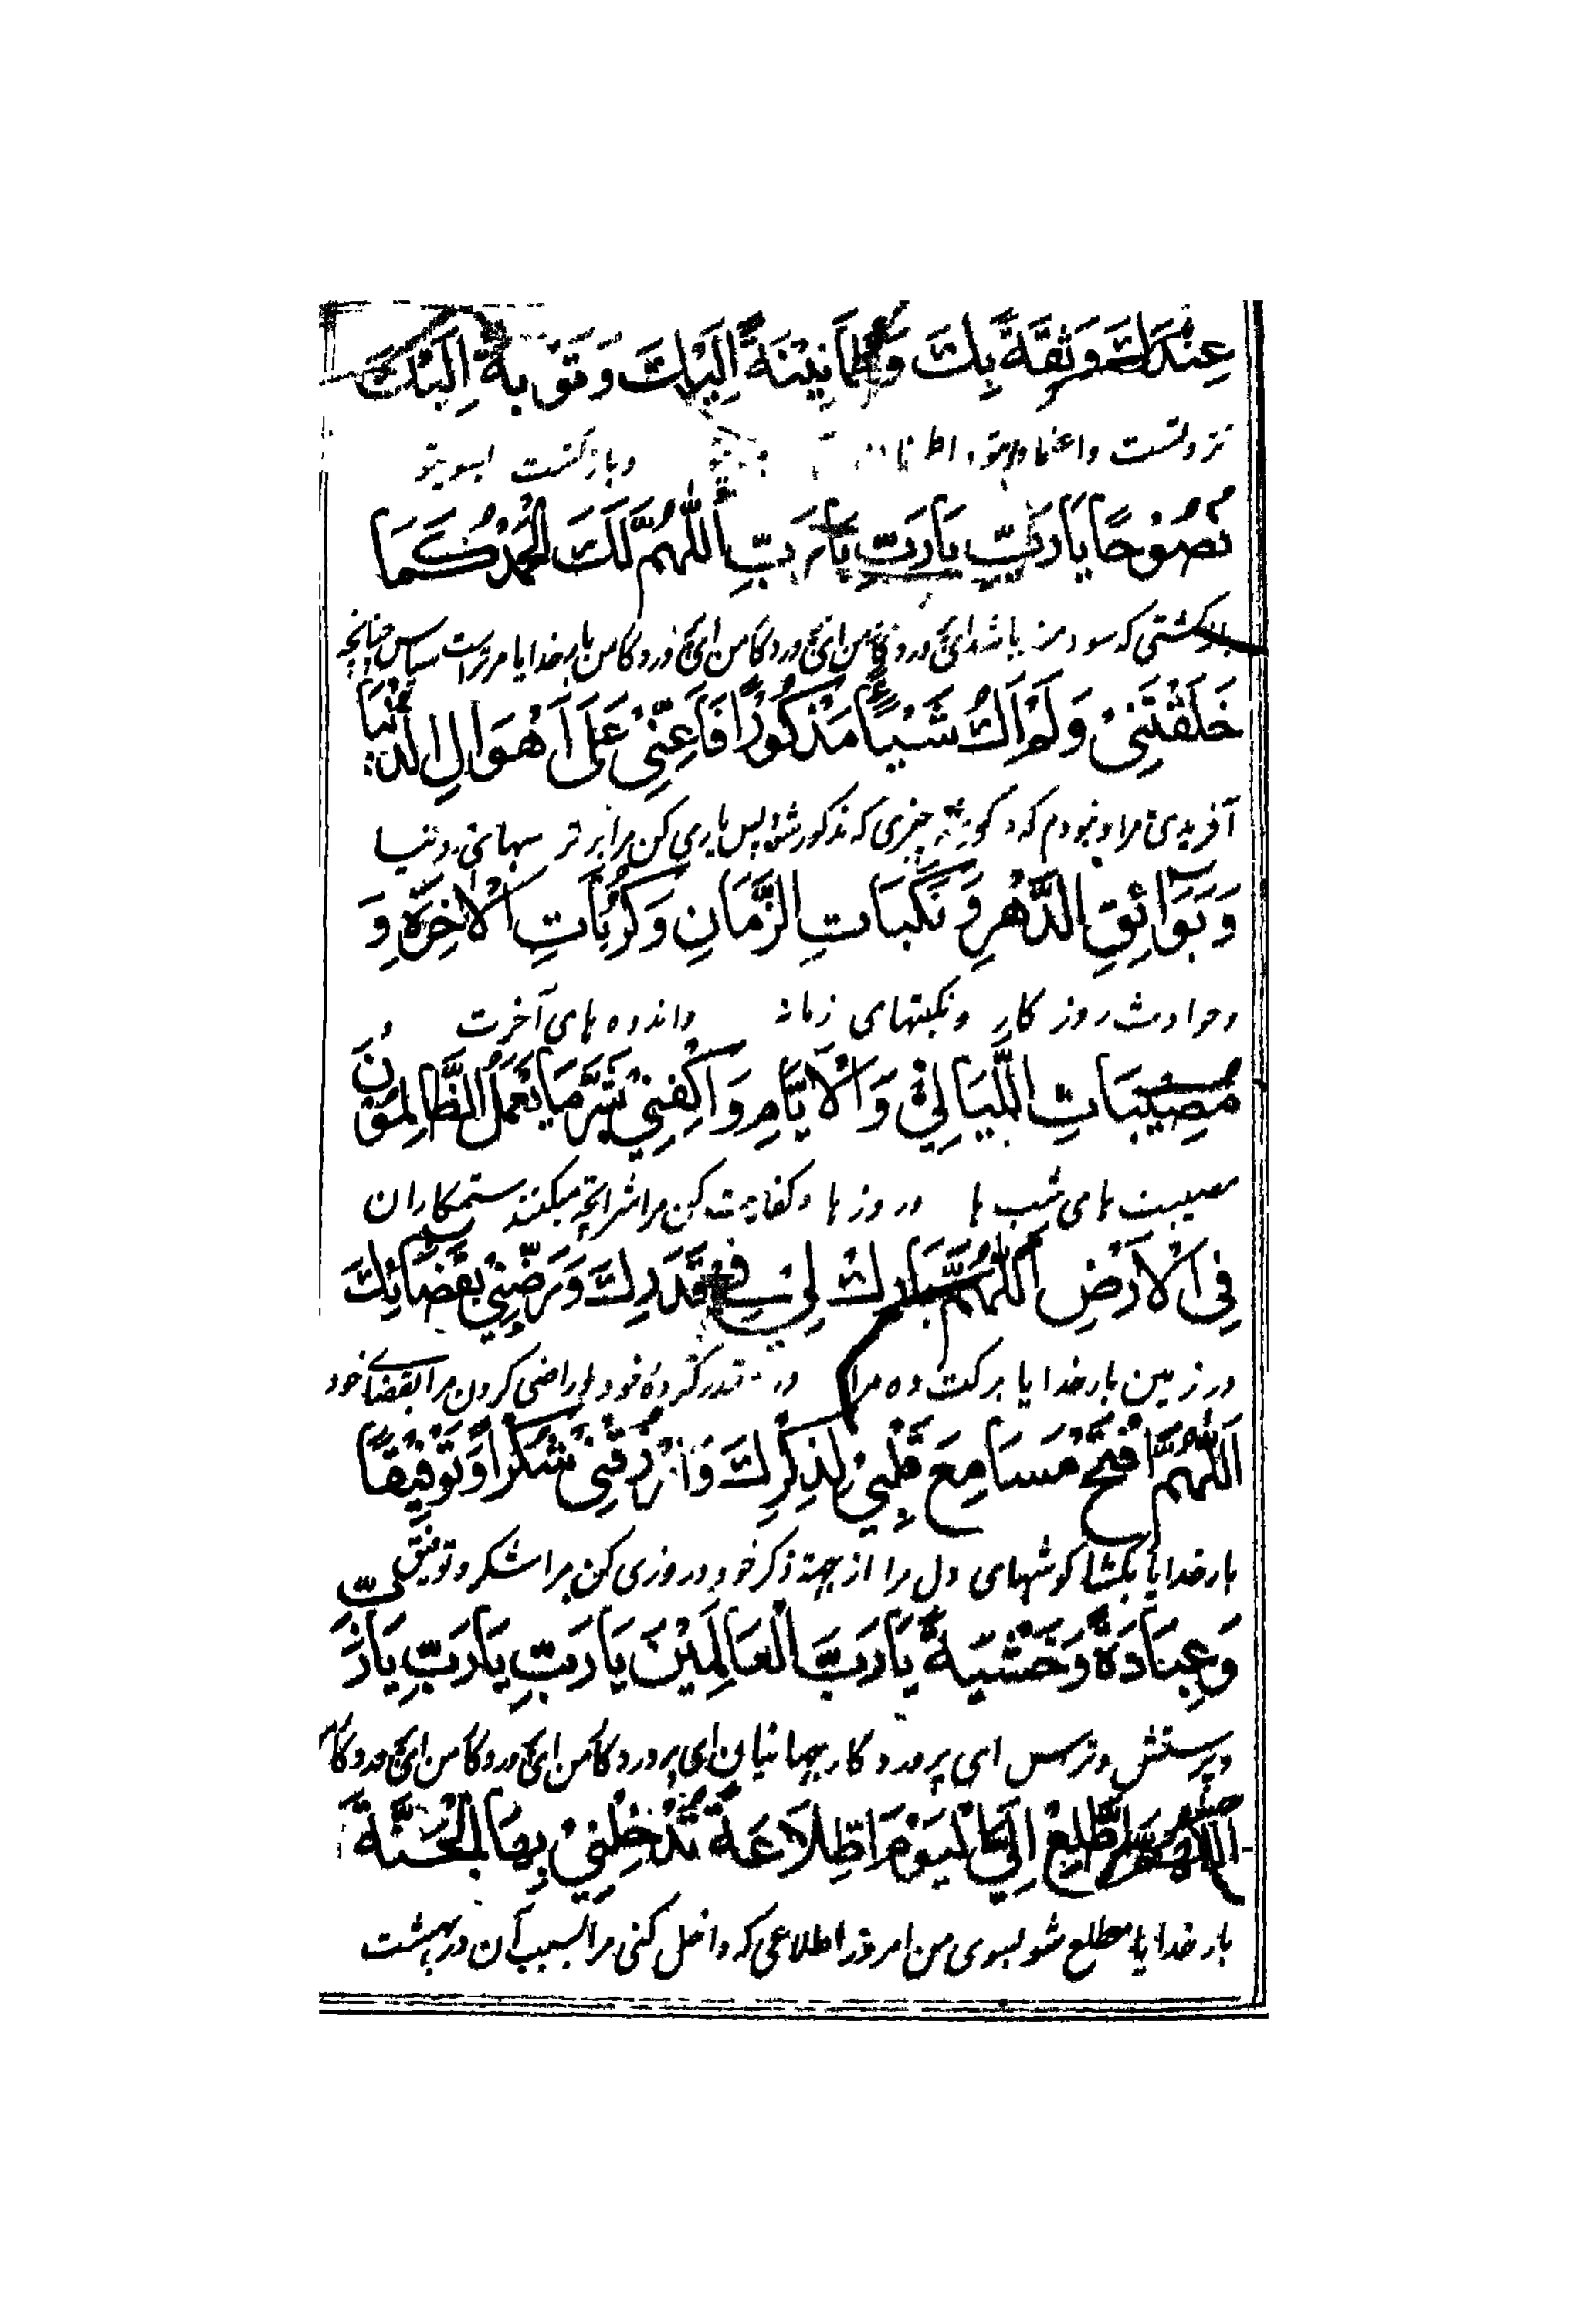 عِنْدَكَ وَثِقَةً بِكَ وَطُمَأْنِيْنَةً اِلَيْكَ وَتَوْبَةً اِلَيْكَ
نزد تست واعتماد بتو و وبازگشت بسویتو
نَصُوْحًا يَارَبِّ يَارَبِّ يَارَبِّ اَللّٰهُمَّ لَكَ الْحَمْدُ كَمَا
بازگشتی که سودمند باشد ای پروردگار من ای پروردگار من ای پروردگار من بار خدایا مر تراست سپاس چنانچه
خَلَقْتَنِيْ وَلَمْ اَكُ شَيْئًا مَذْكُوْرًا فَاَعِنِّيْ عَلٰى اَهْوَالِ الدُّنْيَا
آفریدی مرا ونبودم که چیزی که مذکور شود پس یاری کن مرا بر ترسهای دنیا
وَبَوَائِقِ الدَّهْرِ وَنَكَبَاتِ الزَّمَانِ وَكُرُبَاتِ الْاٰخِرَةِ وَ
وحوادث روزگار ونکبتهای زمانه واندوه های آخرت و
مُصِيْبَاتِ اللَّيَالِيْ وَالْاَيَّامِ وَاكْفِنِيْ شَرَّ مَا يَعْمَلُ الظَّالِمُوْنَ
مصیبت های شب ها وروزها وکفایت کن مرا شر آنچه میکنند ستمکاران
فِي الْاَرْضِ اَللّٰهُمَّ بَارِكْ لِيْ فِيْ قَدَرِكَ وَرَضِّنِيْ بِقَضَائِكَ
در زمین بار خدایا برکت ده مرا در قدر کرده خود و راضی کردن مرا بقضای خود
اَللّٰهُمَّ افْتَحْ مَسَامِعَ قَلْبِيْ لِذِكْرِكَ وَارْزُقْنِيْ شُكْرًا وَتَوْفِيْقًا
بار خدایا بکشا گوشهای دل مرا از جهة ذکر خود و روزی کن مرا شکر وتوفیق
وَعِبَادَةً وَخَشْيَةً يَارَبَّ الْعَالَمِيْنَ يَارَبِّ يَارَبِّ يَارَبِّ
وپرستش وترس ای پروردگار جهانیان ای پروردگار من ای پروردگار من ای پروردگار من
اَللّٰهُمَّ اطَّلِعْ اِلَيَّ الْيَوْمَ اطِّلَاعَةً تُدْخِلُنِيْ بِهَا الْجَنَّةَ
بار خدایا مطلع شو بسوی من امروز اطلاعی که داخل کنی مرا بسبب آن در بهشت